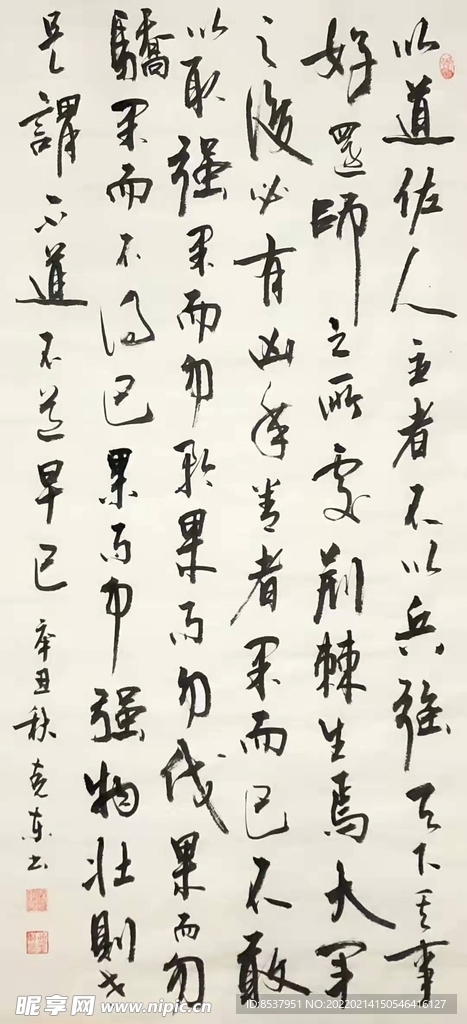 以道佐人主者不以兵强天下其事
好還師之所處荆棘生焉大軍
之後必有凶年善者果而已不敢
以取强果而勿矜果而勿伐果而勿
驕果而不得已果而勿强物壯則老
是謂不道不道早已
辛丑秋克東书
昵享网 www.nipic.cn
ID:8537951 NO:20220214150546416127